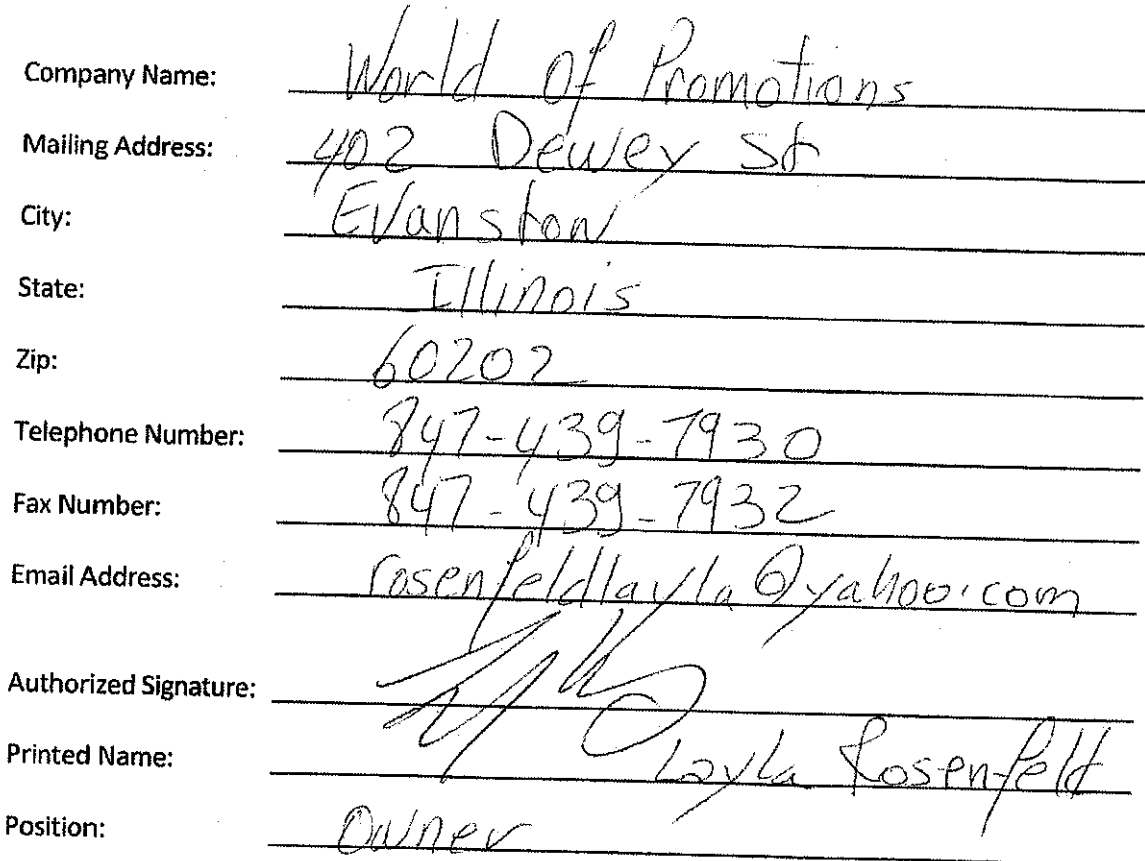 Company Name: World Of Promotions
Mailing Address: 402 Dewey St
City: Evanston
State: Illinois
Zip: 60202
Telephone Number: 847-439-7930
Fax Number: 847-439-7932
Email Address: rosenfeldlayla@yahoo.com
Authorized Signature:
Printed Name: Layla Rosenfeld
Position: Owner